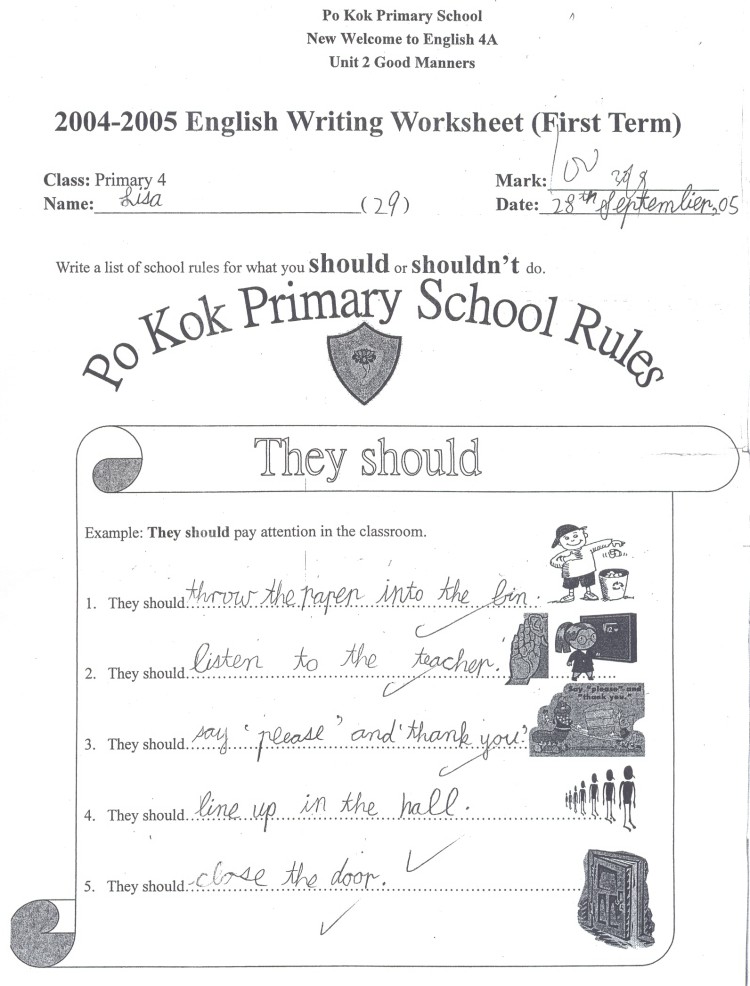 Po Kok Primary School
New Welcome to English 4A
Unit 2 Good Manners
2004-2005 English Writing Worksheet (First Term)
Class: Primary 4
Mark:
Name: Lisa (29)
Date: 28th September, 05
Write a list of school rules for what you should or shouldn't do.
Po Kok Primary School Rules
They should
Example: They should pay attention in the classroom.
1. They should throw the paper into the bin.
2. They should listen to the teacher.
Say "please" and
"thank you."
3. They should say 'please' and 'thank you'.
4. They should line up in the hall.
5. They should close the door.